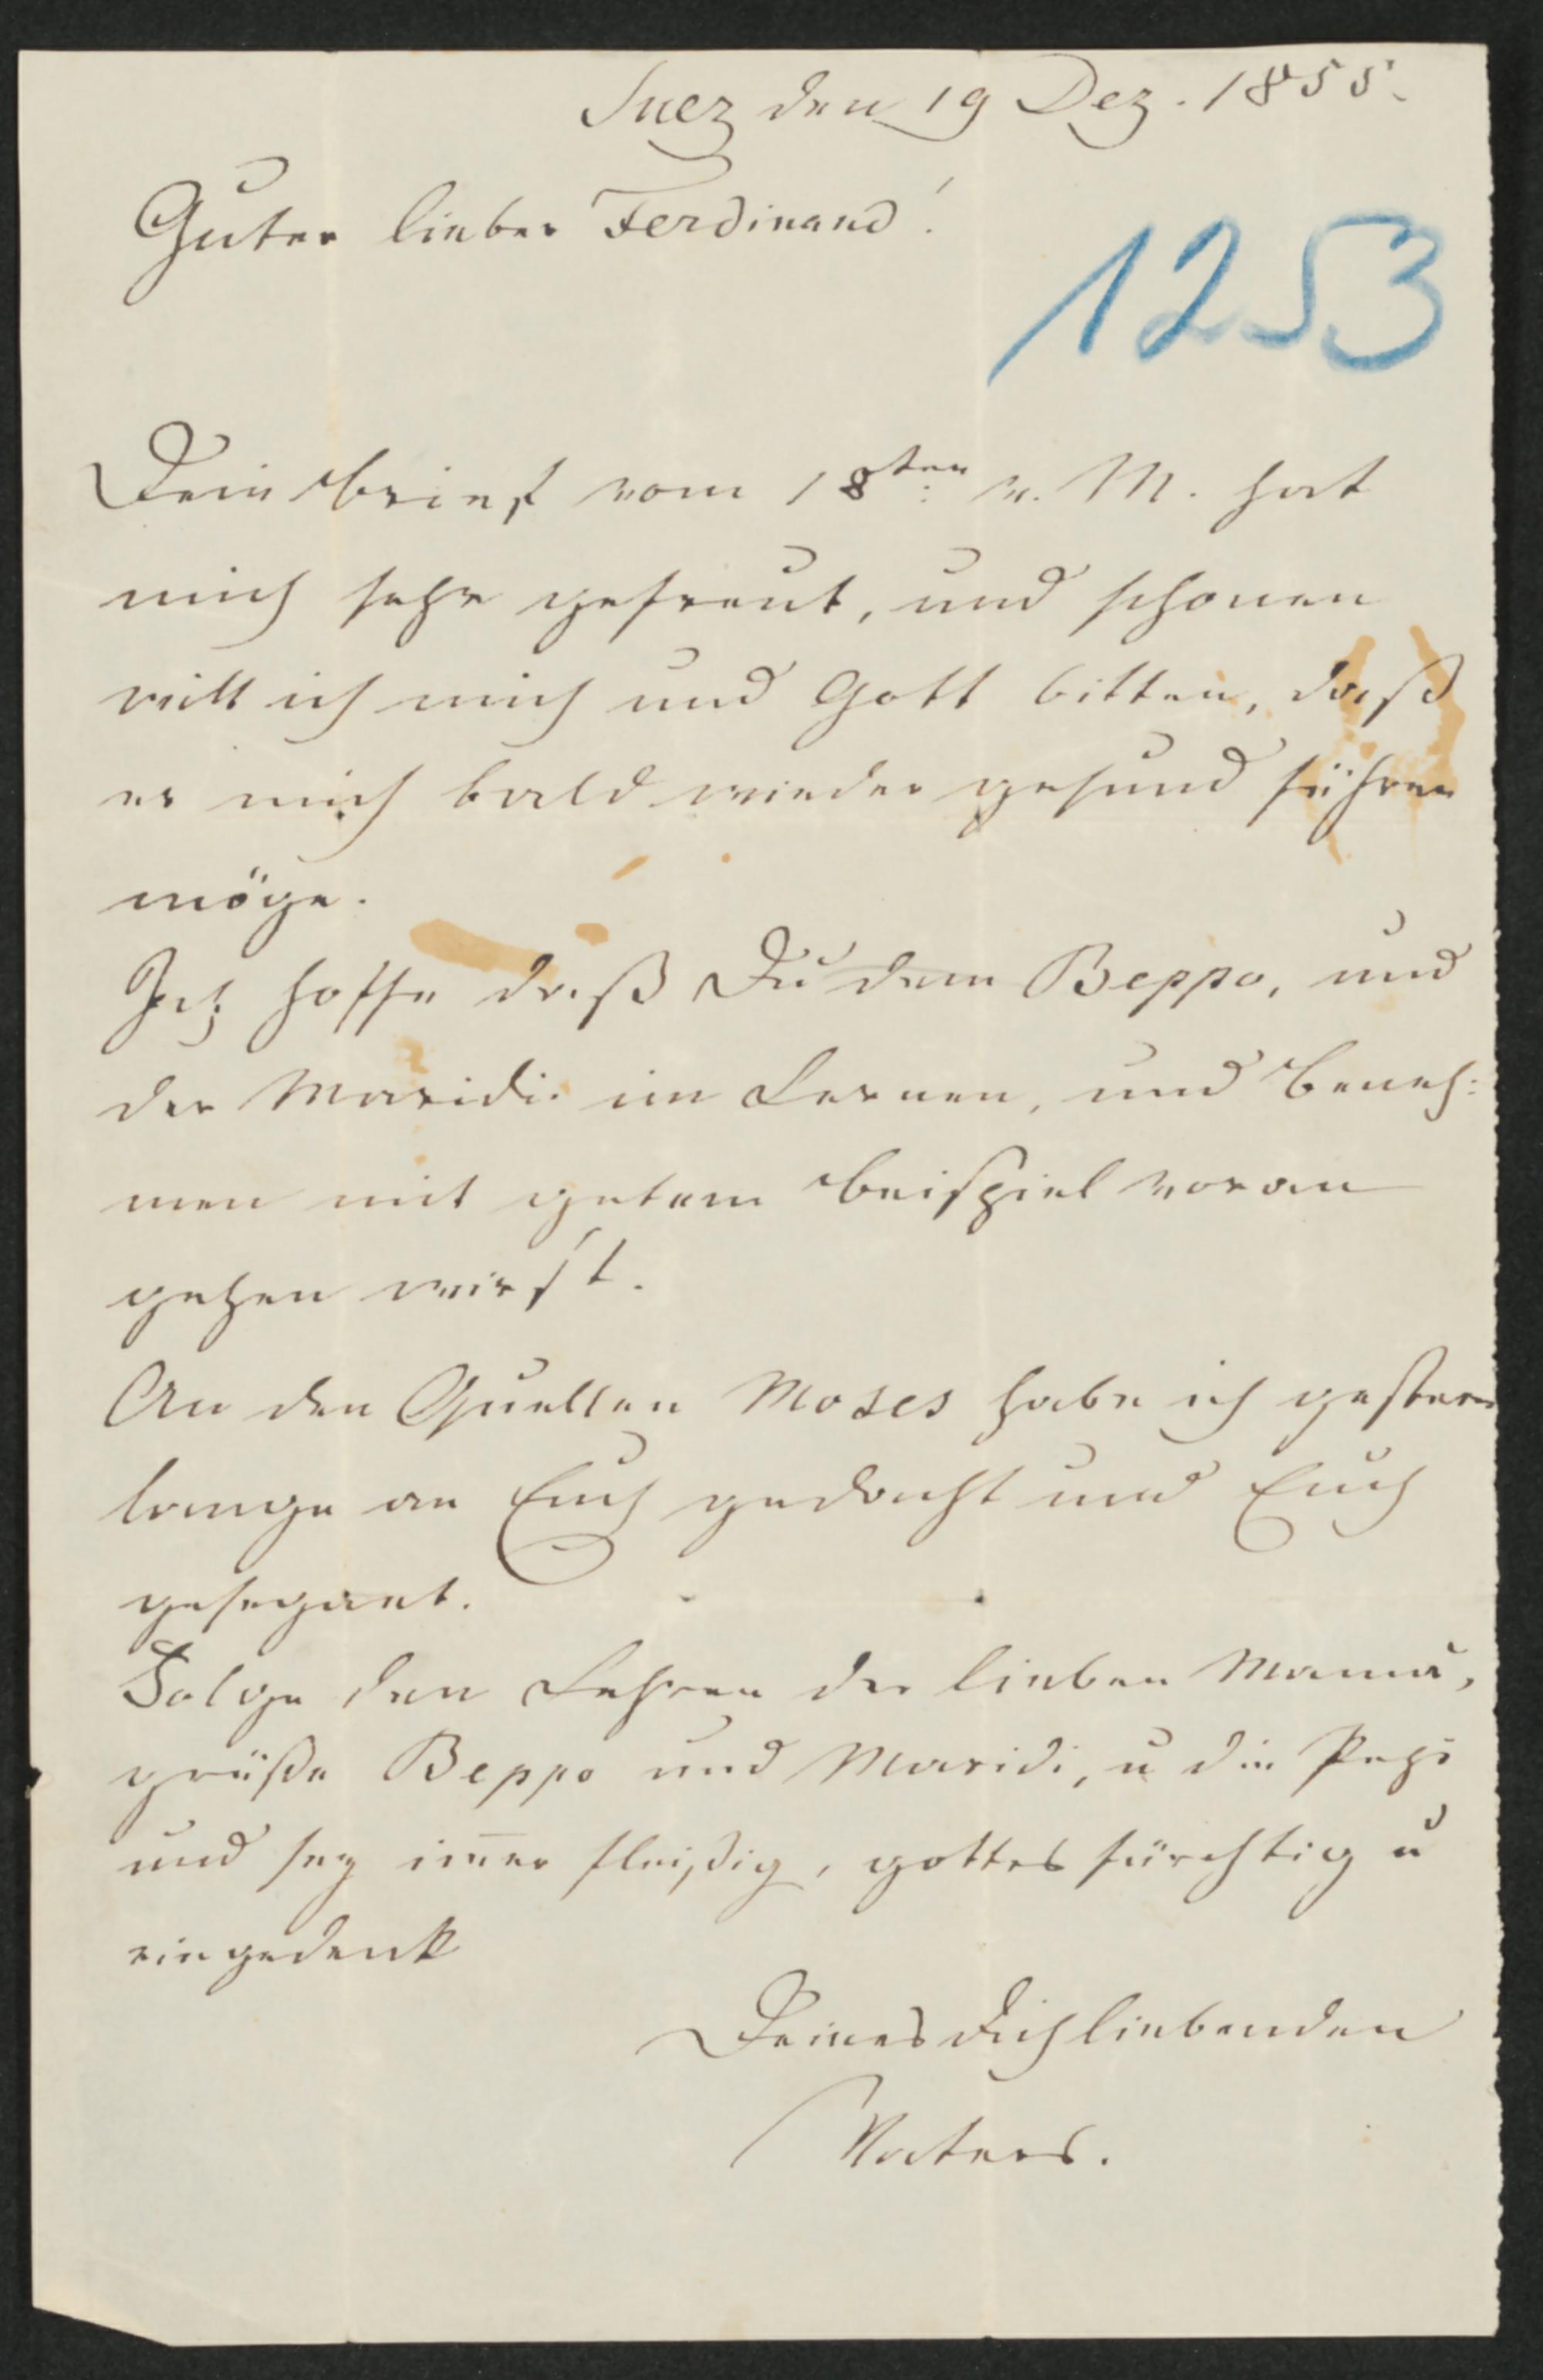 Suez den 19 Dez. 1855.
Guter lieber Ferdinand!
1253
Dein Brief vom 18ten: v. M. hat
mich sehr gefreut, und schonen
will ich mich und Gott bitten, daß
er mich bald wieder gesund führen
möge.
Ich hoffe daß Du dem Beppo, und
der Maridi im Lernen, und Beneh:
men mit gutem Beispiel voran
gehen wirst.
An den Quellen Moses habe ich gestern
lange an Euch gedacht und Euch
gesegnet.
Folge den Lehren der lieben Mama,
grüße Beppo und Maridi, u die Pepi
und sey im̄er fleißig, gottesfürchtig u
eingedenk
Deines Dich liebenden
Vaters.